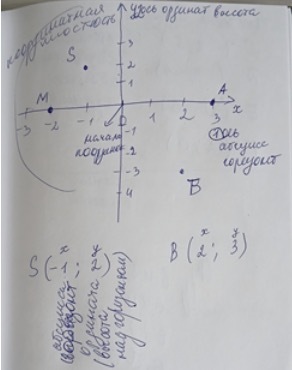 координатная
плоскость
у ось ординат высота
S
3
2
1
M
A
x
-3 -2 -1 0 1 2 3
начало
координат
ось
абсцисс
горизонт
-1
-2
-3
4
B
x y
S(-1; 2)
x y
B(2; 3)
абсцисса
горизонт
ордината
(высота
над горизонтом)